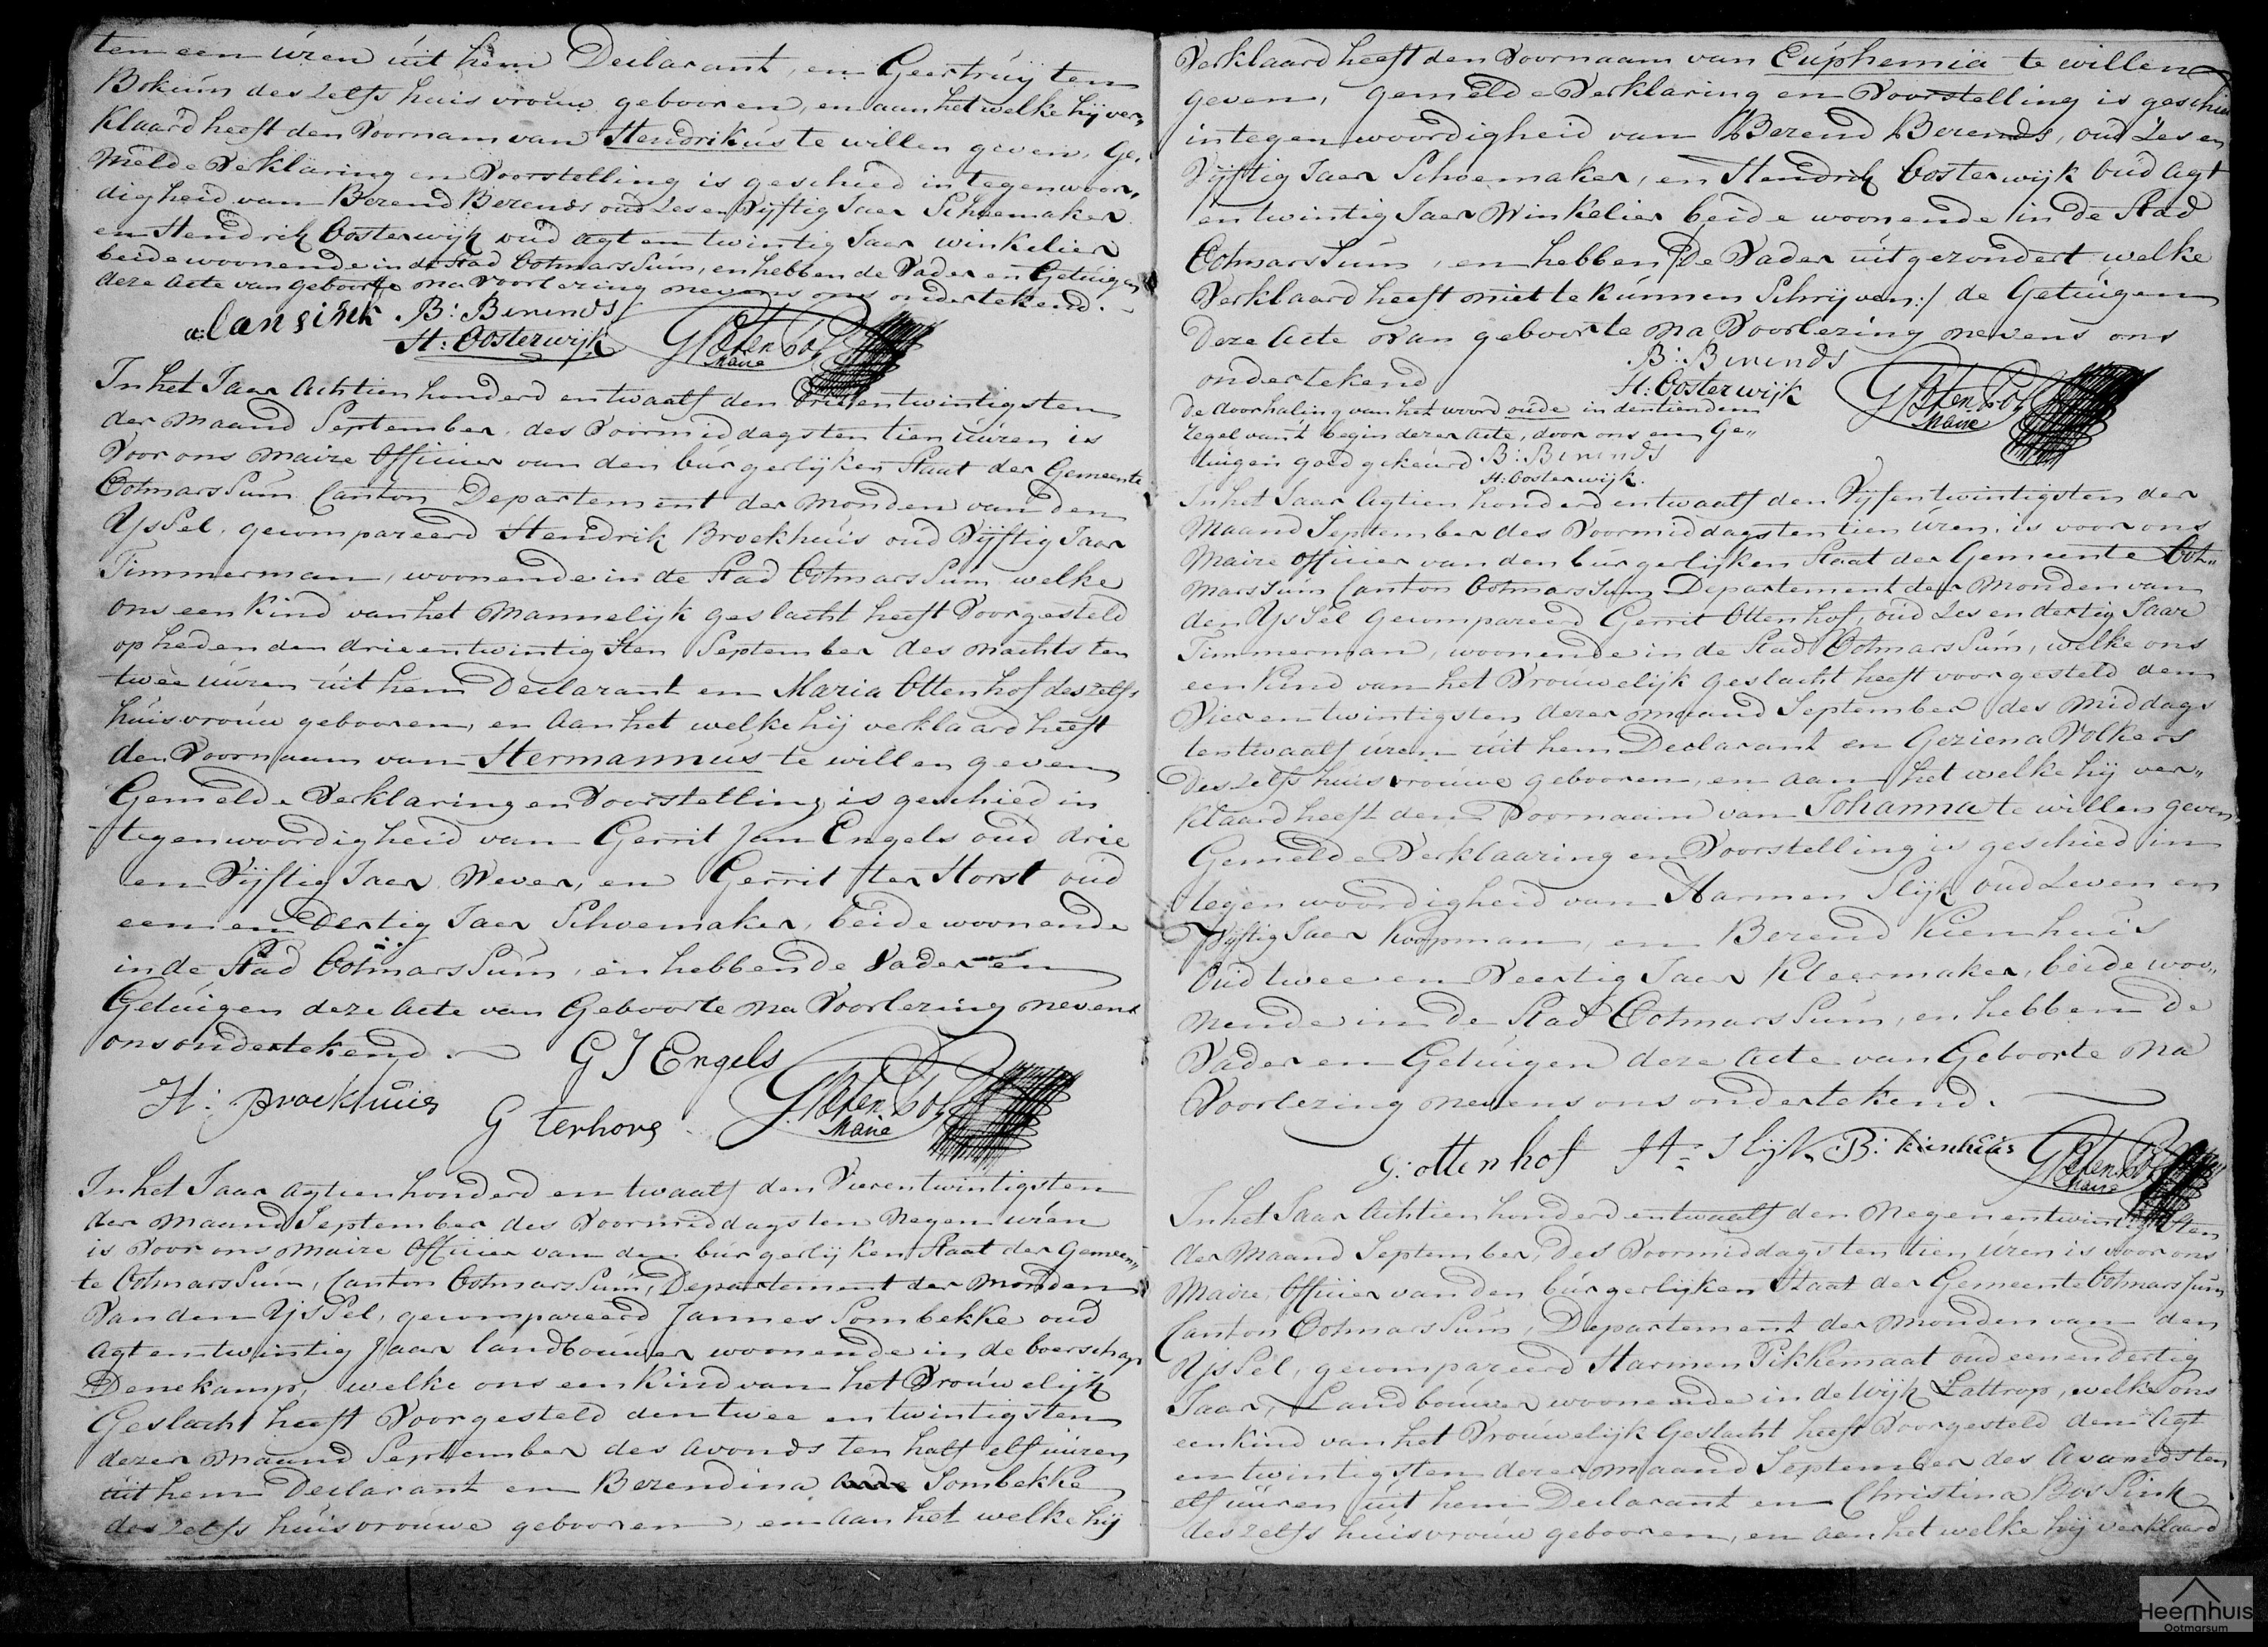 ten een úren úit hem Declarant, en Geertruij ten
Bokúm deszelfs huisvrouw gebooren, en aan het welke hij ver„
Klaard heeft den Voornam van Hendrikús te willen geven, Ge„
melde Verklaring en Voorstelling is geschied in tegenwoor„
digheid van Berend Berends oud Zes en Vijftig Jaer Schoemaker
en Hendrik Oosterwijk oud agt en twintig Jaer winkelier
beide woonende in de Stad OotmarsSúm, en hebben de Vader en Getúigen
deze Acte van geboorte na voorlezing nevens ons ondertekend.
a: Lansink B: Berends
H: Oosterwijk
Maire
In het Jaar Achtienhonderd en twaalf den Drieentwintigsten
der Maand September des Voormiddags ten tien úúren is
Voor ons Maire Officier van den búrgerlijken Staat der Gemeente
OotmarsSúm Canton Departement der Monden van den
YsSel, gecompareerd Hendrik Broekhúis oud Vijftig Jaar
Timmerman, woonende in de Stad OotmarsSúm welke
ons een Kind van het Mannelijk geslacht heeft Voorgesteld
op heden den drieentwintigsten September des nachts ten
twee úúren úit hem Declarant en Maria Ottenhof deszelfs
húisvroúw gebooren, en aan het welke hij verklaard heeft
den Voornaam van Hermannús te willen geven
Gemelde Verklaring en Voorstelling is geschied in
tegenwoordigheid van Gerrit Jan Engels oud drie
en Vijftig Jaer Wever, en Gerrit ter Horst oud
een en Dertig Jaer Schoemaker, beide woonende
in de Stad OotmarsSúm, en hebben de Vader en
Getúigen deze Acte van Geboorte na Voorlezing nevens
ons ondertekend.
G J Engels
H: Broekhuis
G terhors
Maire
In het Jaar Agtienhonderd en twaalf den Vierentwintigsten
der Maand September des Voormiddags ten Negen úren
is Voor ons Maire Officier van den búrgerlijken Staat der Gemeen„
te OotmarsSúm, Canton OotmarsSúm, Departement der Monden
Van den YsSel, gecompareerd Jannes Sombekke oud
Agt en twintig Jaar landboúwer woonende in de boerschap
Denekamp, welke ons een Kind van het Vroúwelijk
Geslacht heeft Voorgesteld den twee en twintigsten
dezer Maand September des Avonds ten half elf úúren
úit hem Declarant en Berendina oude Sombekke
deszelfs húisvroúwe gebooren, en aan het welke hij
Verklaard heeft den Voornaam van Eúphemia te willen
geven, gemelde Verklaring en Voorstelling is geschied
in tegenwoordigheid van Berend Berends, oud Zes en
Vijftig Jaer Schoemaker, en Hendrik Oosterwijk oud Agt
en twintig Jaer Winkelier beide woonende in de Stad
OotmarsSúm, en hebben /:De Vader úitgezondert welke
Verklaard heeft niet te kúnnen Schrijven:/ de Getúigen
Deze Acte van geboorte na Voorlezing nevens ons
ondertekend
B: Berends
H: Oosterwijk
Maire
De doorhaling van het woord oude in den tienden
regel van't begin dezer Acte, door ons en Ge„
tuigen goed gekeúrd B: Berends
H: Oosterwijk.
In het Jaar Agtienhonderd en twaalf den Vijfentwintigsten der
Maand September des Voormiddags ten tien úren, is voor ons
Maire Officier van den búrgerlijken Staat der Gemeente Oot„
marsSúm Canton OotmarsSúm Departement der Monden van
den YsSel gecompareerd Gerrit Ottenhof, oúd Zes en dertig Jaar
Timmerman, woonende in de Stad OotmarsSúm, welke ons
een Kind van het Vroúwelijk geslacht heeft voorgesteld den
Vier en twintigsten dezer maand September des Middags
ten twaalf úren úit hem Declarant en Geziena Volkers
Deszelfs húisvroúwe gebooren, en aan het welke hij ver„
klaard heeft den Voornaam van Johanna te willen geven
Gemelde Verklaaring en Voorstelling is geschied in
tegenwoordigheid van Harmen Slijk oud Zeven en
Vijftig Jaer Koopman, en Berend Kienhuis
Oud twee en Veertig Jaer Kleermaker, beide woo„
nende in de Stad OotmarsSúm, en hebben de
Vader en Getúigen deze Acte van Geboorte na
Voorlezing nevens ons ondertekend.
G: ottenhof H: Slijk B: Kienhuis
Maire
In het Jaar Achtienhonderd en twaalf den Negenentwintigsten
der Maand September, des Voormiddags ten tien úren is voor ons
Maire, Officier van den búrgerlijken Staat der Gemeente OotmarsSúm
Canton OotmarsSúm, Departement der Monden van den
YsSel, gecompareerd Harmen Pikkemaat oud eenendertig
Jaar, Landboúwer woonende in de Wijk Lattrop, welke ons
een Kind van het Vroúwelijk Geslacht heeft Voorgesteld den Agt
en twintigsten dezer maand September des Avonds ten
elf úúren úit hem Declarant en Christina BosSink
deszelfs húisvroúw gebooren, en aan het welke hij verklaard
Heemhuis
Ootmarsum